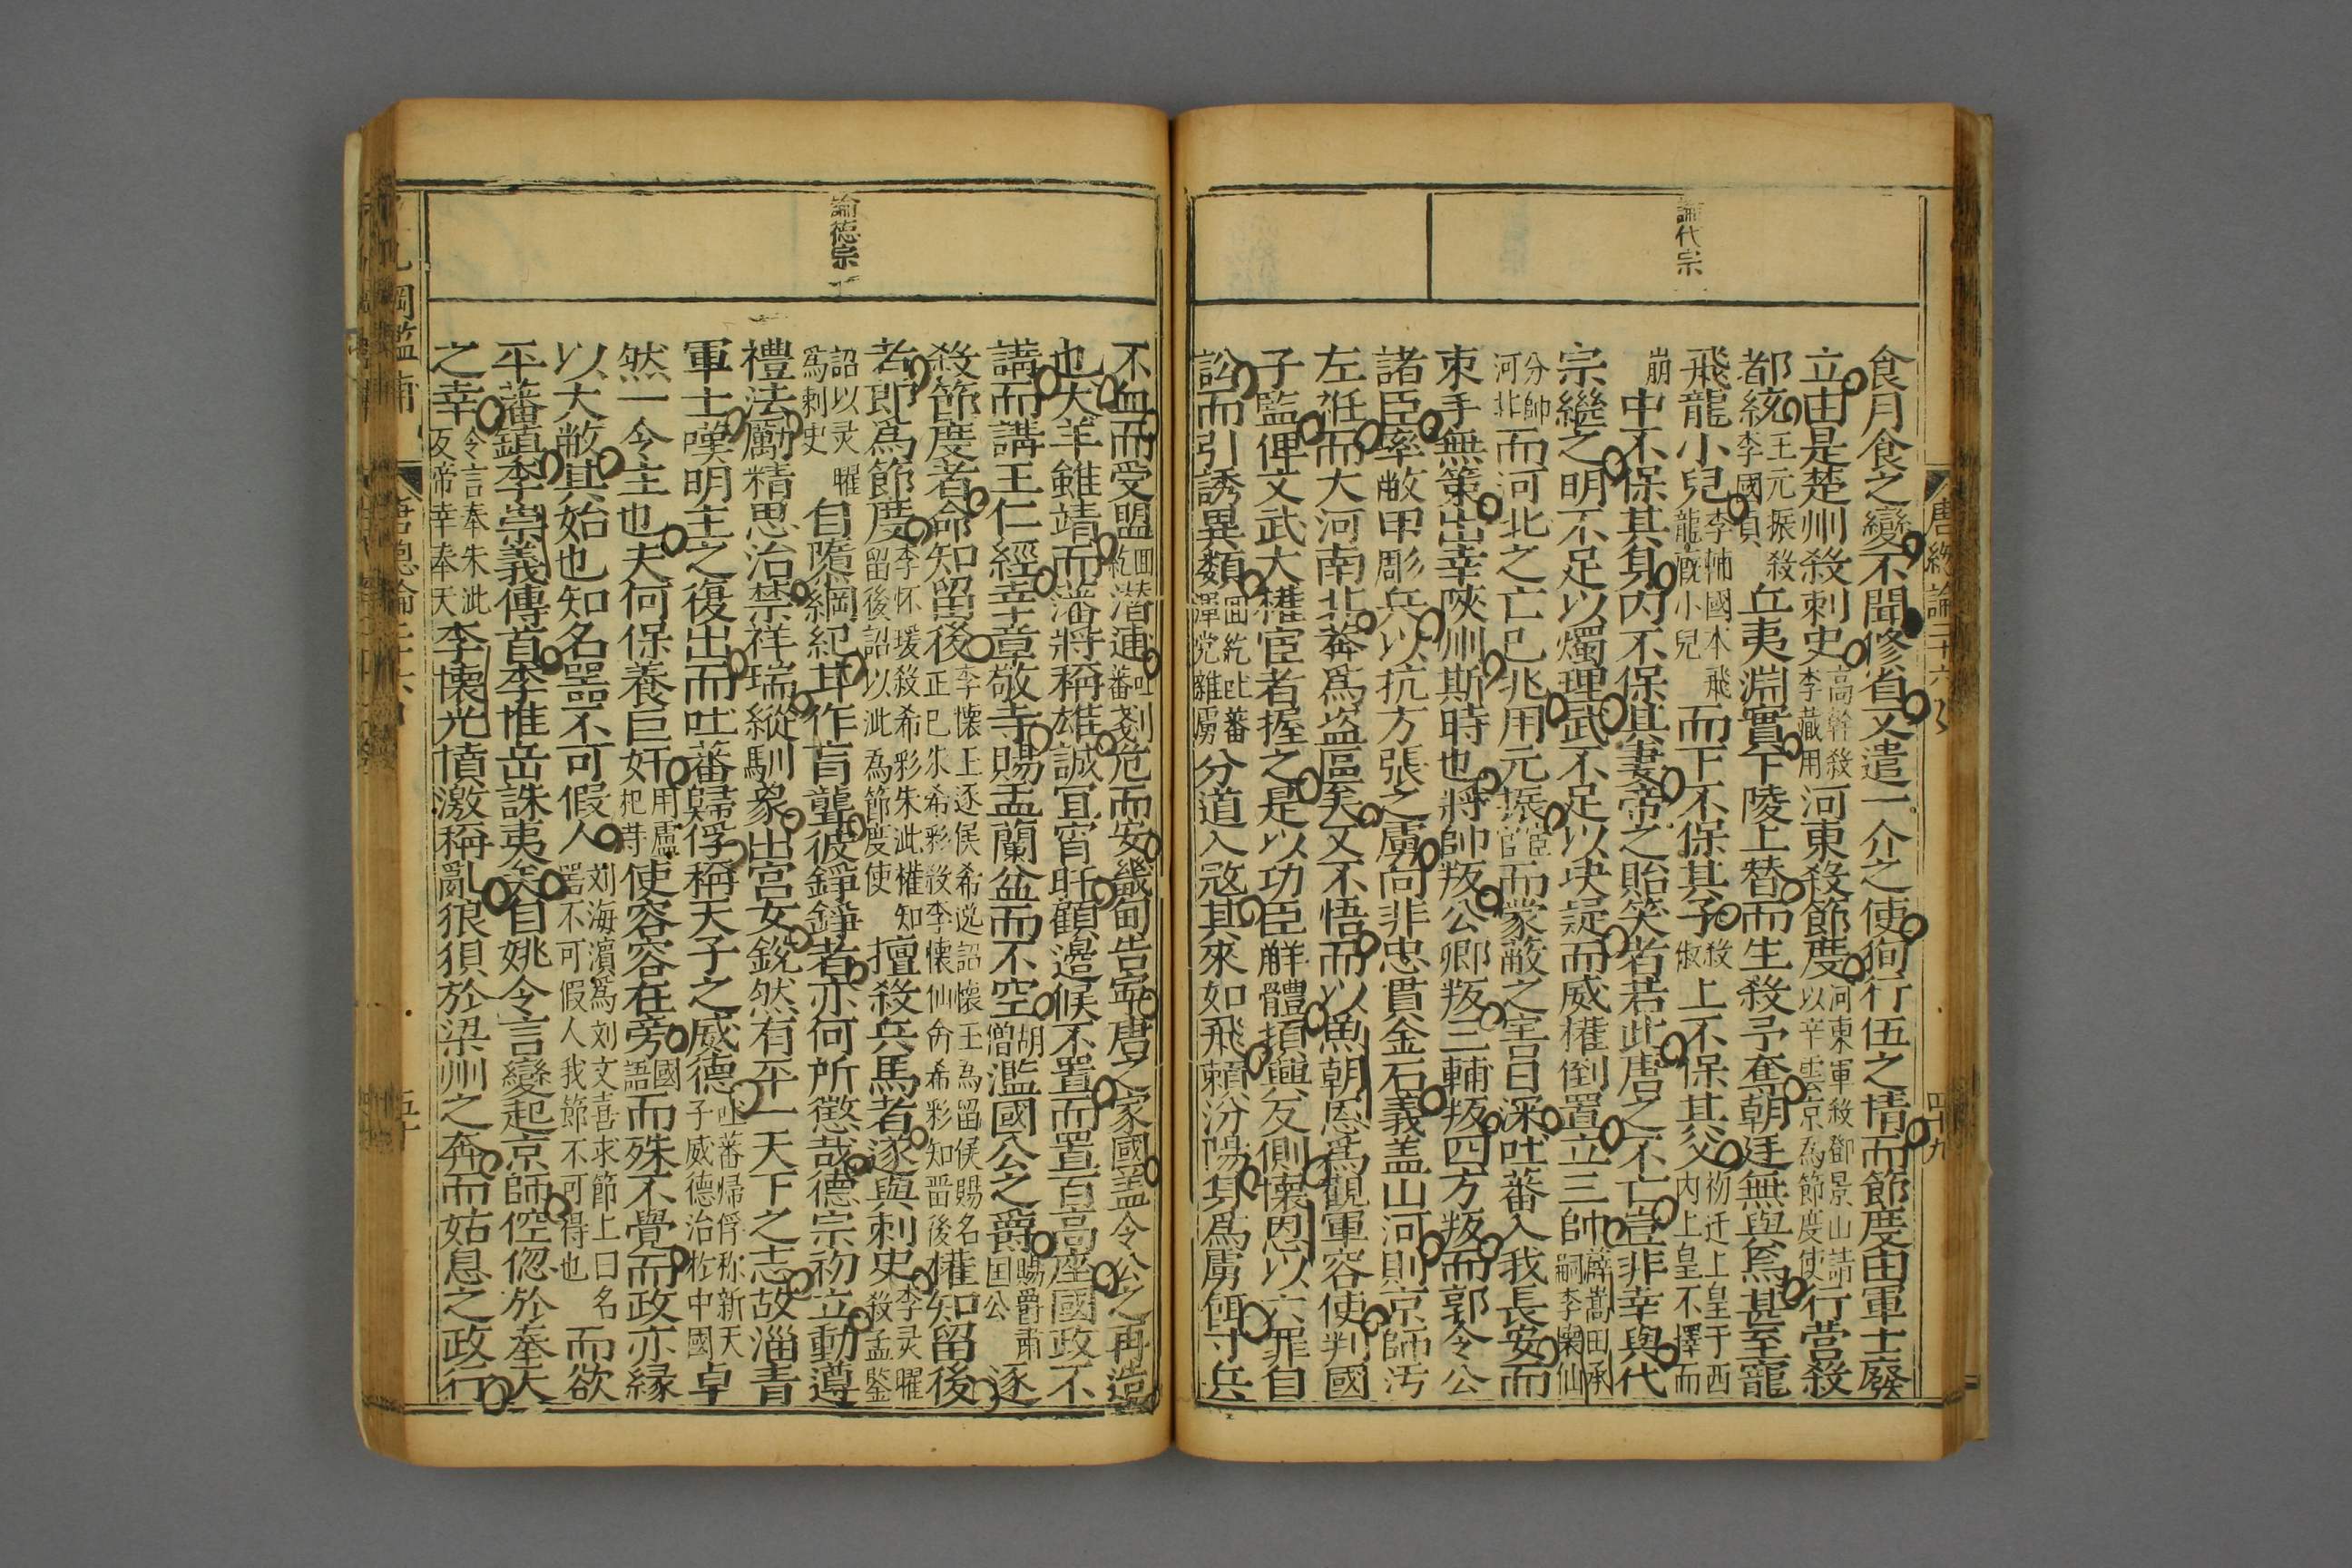 唐總論二十六
四十九
論代宗
食月食之變不聞修省又遣一介之使徇行伍之情而節度由軍士廢
立由是楚州殺刺史高幹殺李藏用河東殺節度河東軍殺鄧景山請以辛雲京為節度使行營殺
都統王元振殺李國貞丘夷淵實下陵上替而生殺予奪朝廷無與焉甚至寵
飛龍小兒李輔國本飛龍廐小兒而下不保其子殺俶上不保其父扨迁上皇于西內上皇不擇而
崩中不保其身內不保其妻帝之貽笑者若此唐之不亡豈非幸與代
宗繼之明不足以燭理武不足以决疑而威權倒置立三帥薛嵩田承嗣李懷仙
分帥河北而河北之亡已兆用元振宦官而蒙蔽之害日深吐蕃入我長安而
束手無策出幸陜州斯時也將帥叛公卿叛三輔叛四方叛而郭令公
諸臣率敝甲彫兵以抗方張之虜向非忠貫金石義盖山河則京師汚
左衽而大河南北莾爲盗區矣又不悟而以魚朝恩爲觀軍容使判國
子監俾文武大權宦者握之是以功臣觧體頊興反側懷恩以六罪自
訟而引誘異類囬紇吐蕃渾党雜虜分道入冦其來如飛頼汾陽身爲虜餌寸兵
不血而受盟囬紇潜通吐蕃剗危而安畿甸告寧唐之家國盖令公之再造
也犬羊雖靖而藩將稱雄誠宜宵旰顧邉候不置而置百高座國政不
講而講王仁經幸章敬寺賜盂蘭盆而不空胡僧濫國公之爵賜爵肅国公逐
殺節度者命知留後李懷玉逐侯希逸詔懷玉為留侯賜名正已朱希彩殺李懷仙命希彩知畱後權知留後
者即爲節度李怀瑗殺希彩朱泚權知留後詔以泚為節度使擅殺兵馬者遂與刺史李灵曜殺孟鑒
詔以灵曜爲刺史自隳綱紀耳作盲聾彼錚錚者亦何所懲哉德宗初立動遵
禮法勵精思治禁祥瑞縱馴象出宮女銳然有平一天下之志故淄青
軍士嘆明主之復出而吐蕃歸俘稱天子之威德吐蕃帰俘称新天子威德治於中國卓
然一令主也夫何保養巨奸用盧杞等使容容在旁國語而殊不覺而政亦縁
以大敝其始也知名噐不可假人刘海濱爲刘文喜求節上曰名噐不可假人我節不可得也而欲
平藩鎮李崇義傳首李惟岳誅夷矣自姚令言變起京師倥偬於奉天
之幸令言奉朱泚反帝幸奉天李懷光憤激稱亂狼狽於梁州之奔而姑息之政行
論德宗
綱鑑補
唐總論二十六
五十